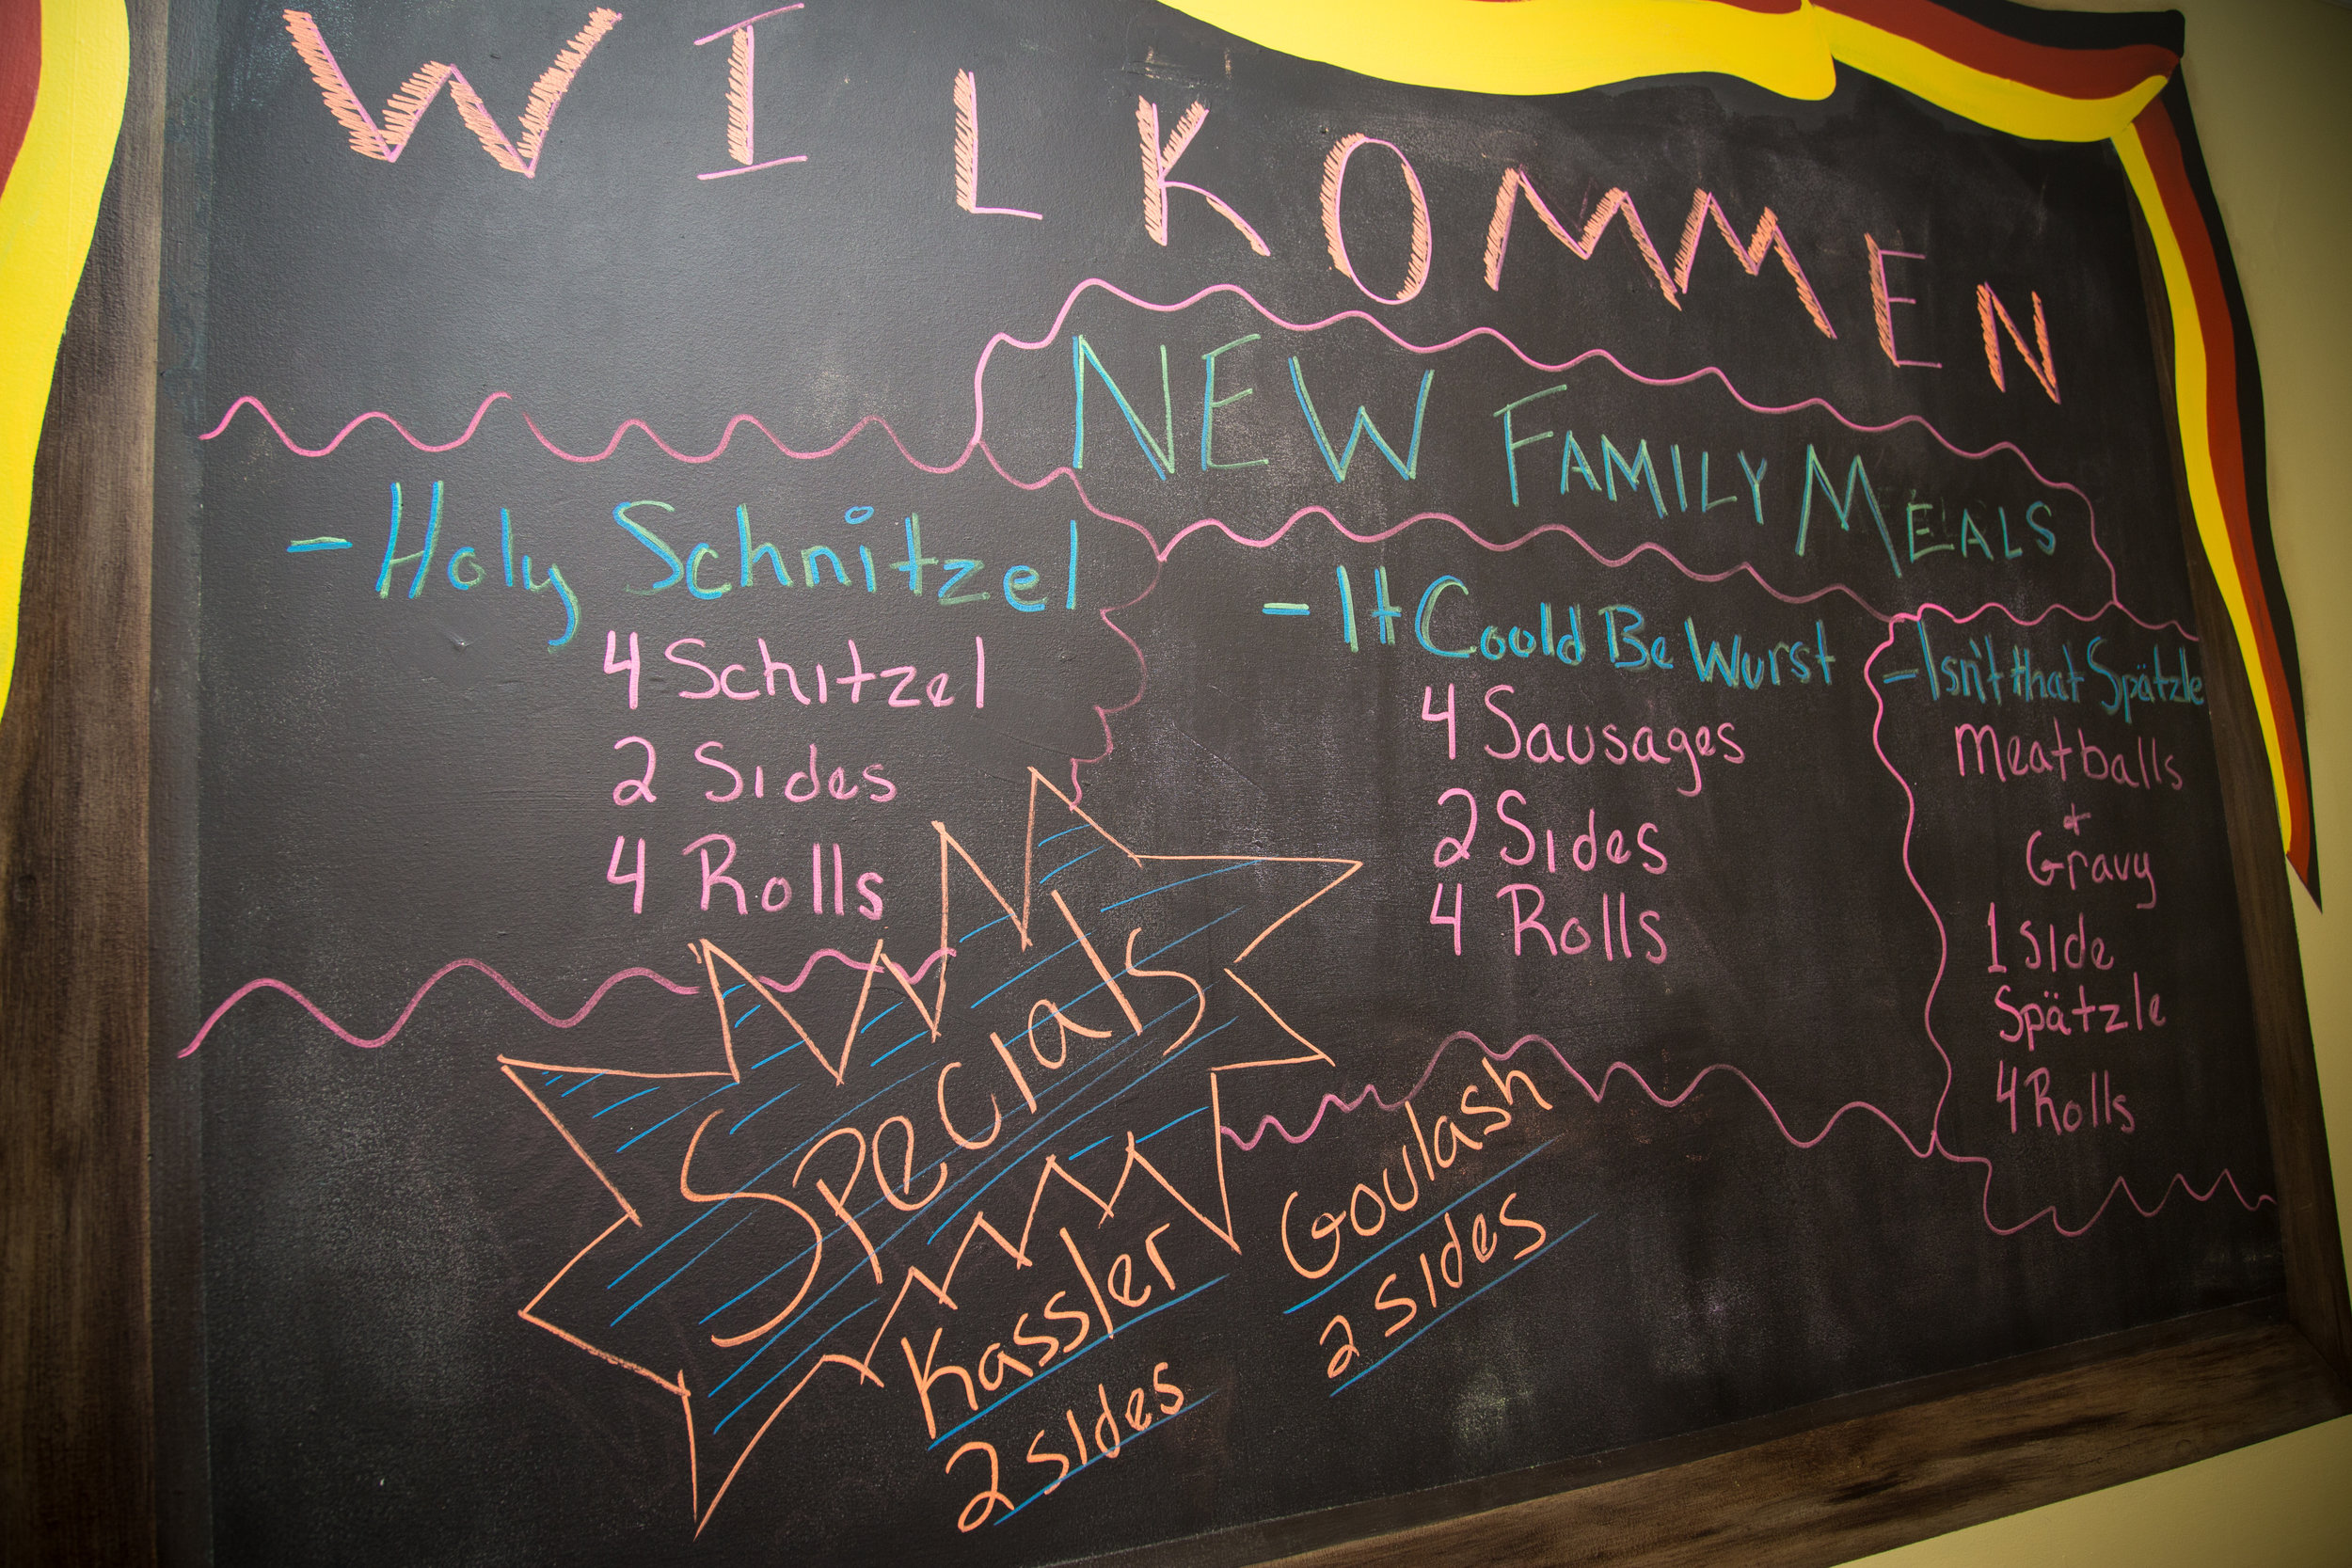 WILKOMMEN
NEW FAMILY MEALS
- Holy Schnitzel
4 Schitzel
2 Sides
4 Rolls
- It Could Be Wurst
4 Sausages
2 Sides
4 Rolls
- Isn't that Spätzle
Meatballs
+
Gravy
1 side
Spätzle
4 Rolls
Specials
Kassler
2 sides
Goulash
2 sides